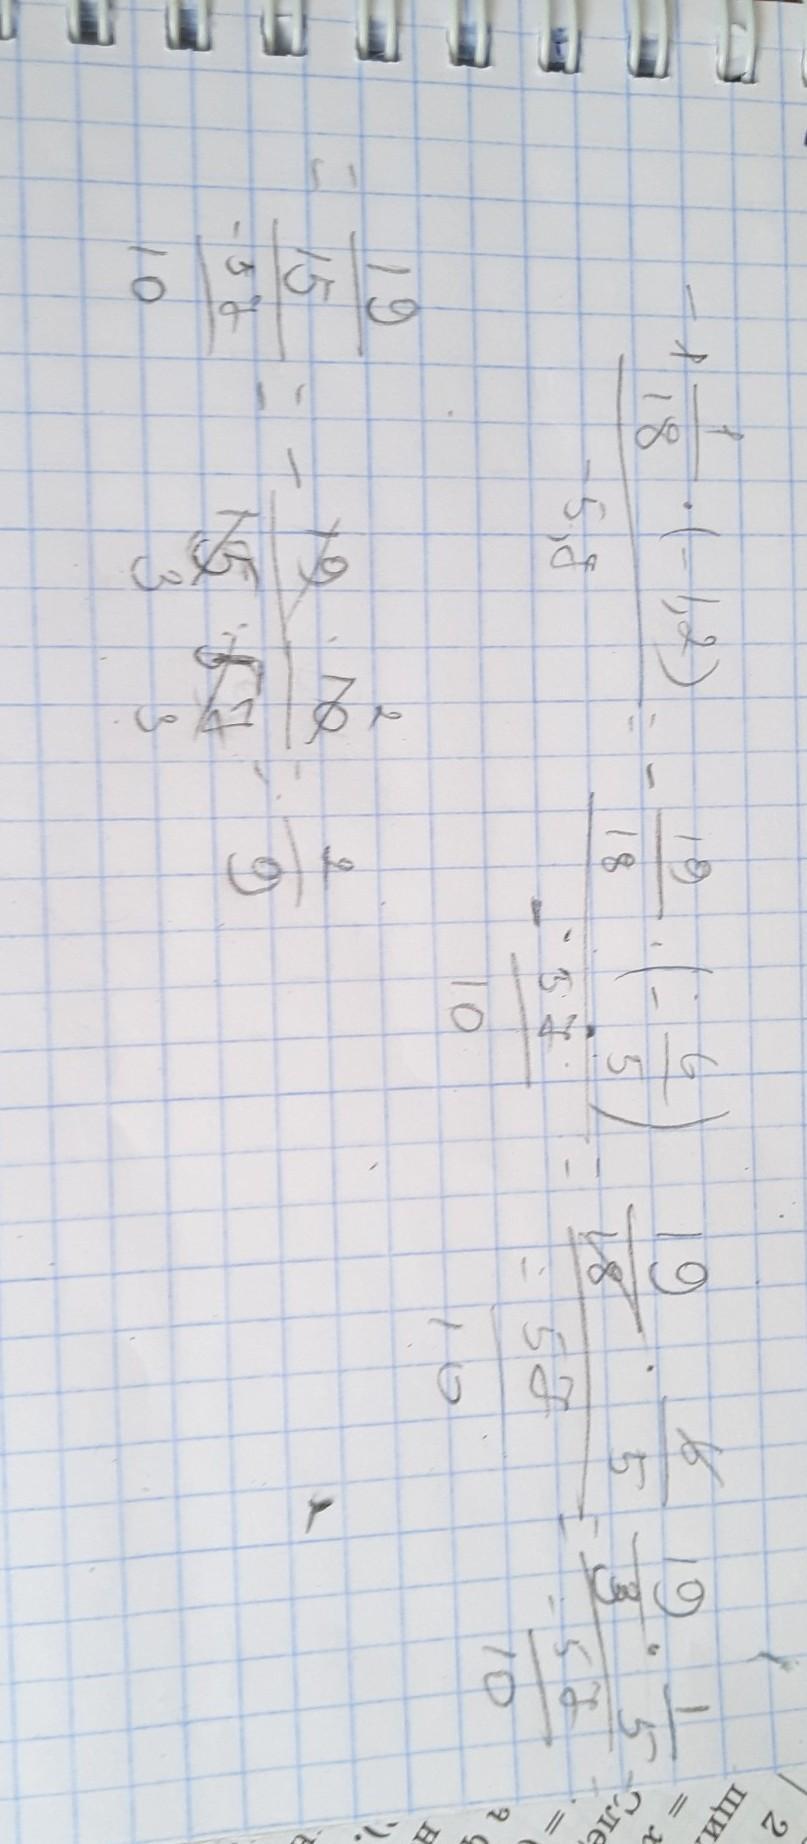 -1 1/18 · (-1,2) / -5,7 = - 19/18 · (- 6/5) / - 57/10 = 19/18 · 6/5 / - 57/10 = 19/3 · 1/5 / - 57/10
= 19/15 / - 57/10 = - 19/15 3 · 10/57 2 3 = 2/9